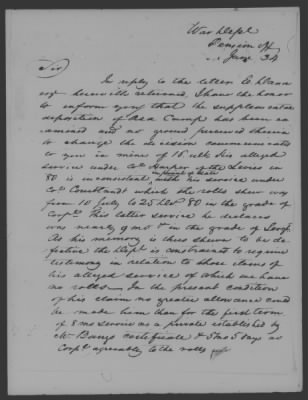 War Dept
Pension Off
Jany 34
Sir
In reply to the letter to
herewith returned, I have the honor
to inform you that the supplemental
deposition of Asa Crump has been ex
amined and no ground perceived therein
to change the decision communicated
to you in mine of 15 ulto. His alleged
service under
in point of date
80 is inconsistent with his service under
Col. Courtland which the rolls shew was
from 10 July to 25 80 in the grade of
Corpl. This latter service he declares
was nearly 9 mos & in the grade of Sergt.
As his memory is thus shewn to be de
fective the Dept is constrained to require
testimony in relation to those claims of
his alleged service of which we have
no rolls. In the present condition
of his claim no greater allowance could
be made him than for the first term
of 8 mos service as a private established by
Mr certificate & 5 mos 5 days as
Corpl agreeably to the rolls